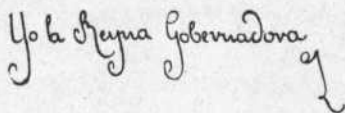 Yo la Reyna Gobernadora